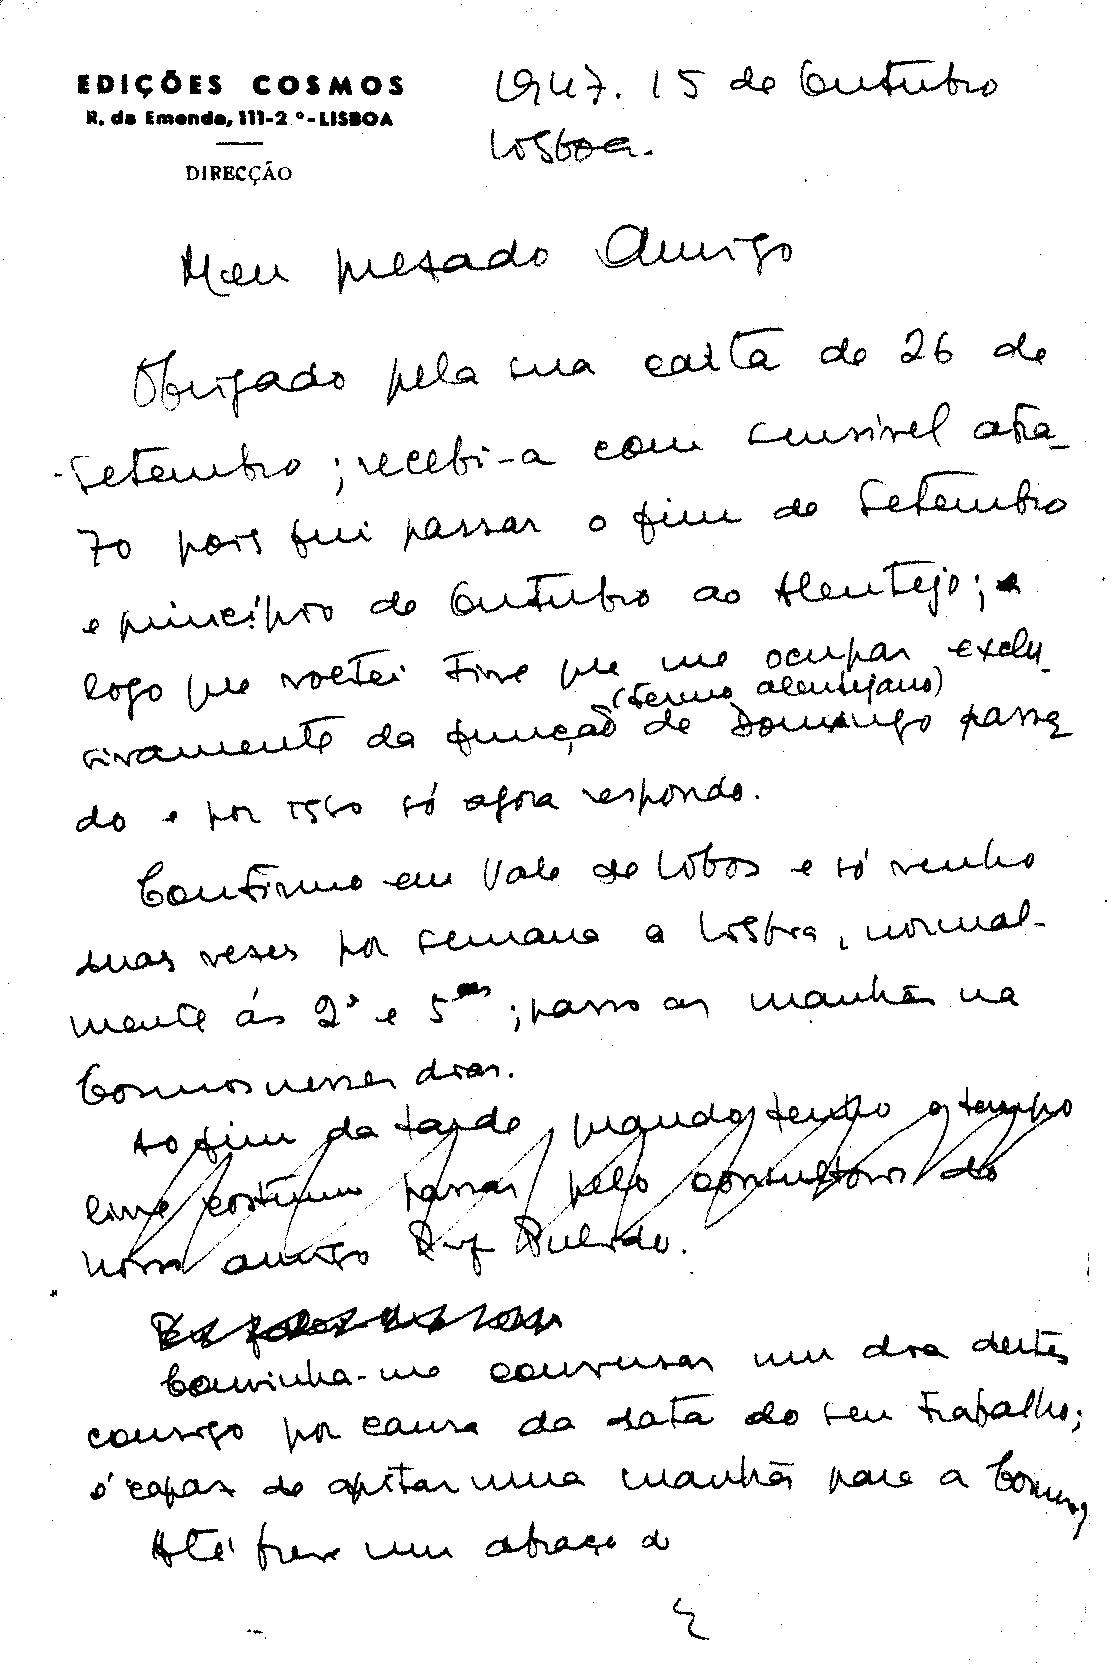 EDIÇÕES COSMOS
R. da Emenda, 111-2.º-LISBOA
DIRECÇÃO
1947. 15 de Outubro
Lisboa.
Meu presado Amigo
Obrigado pela sua carta de 26 de
Setembro; recebi-a com sensível atra-
zo pois fui passar o fim de Setembro
e princípio de Outubro ao Alentejo; e
logo que voltei tive que me ocupar exclu-
sivamente da função (termo alentejano) de Domingo passa
do e por isso só agora respondo.
Continuo em Vale de Lobos e só venho
duas vezes por semana a Lisboa, normal-
mente ás 2ª e 5as; passo as manhãs na
Cosmos nesses dias.
Ao fim da tarde, quando tenho o tempo
livre costumo passar pelo consultorio do
nosso amigo Pulido.
Convinha-me conversar um dia destes
consigo por causa da data do seu trabalho;
é capaz de apitar uma manhã para a Cosmos?
Até breve um abraço do